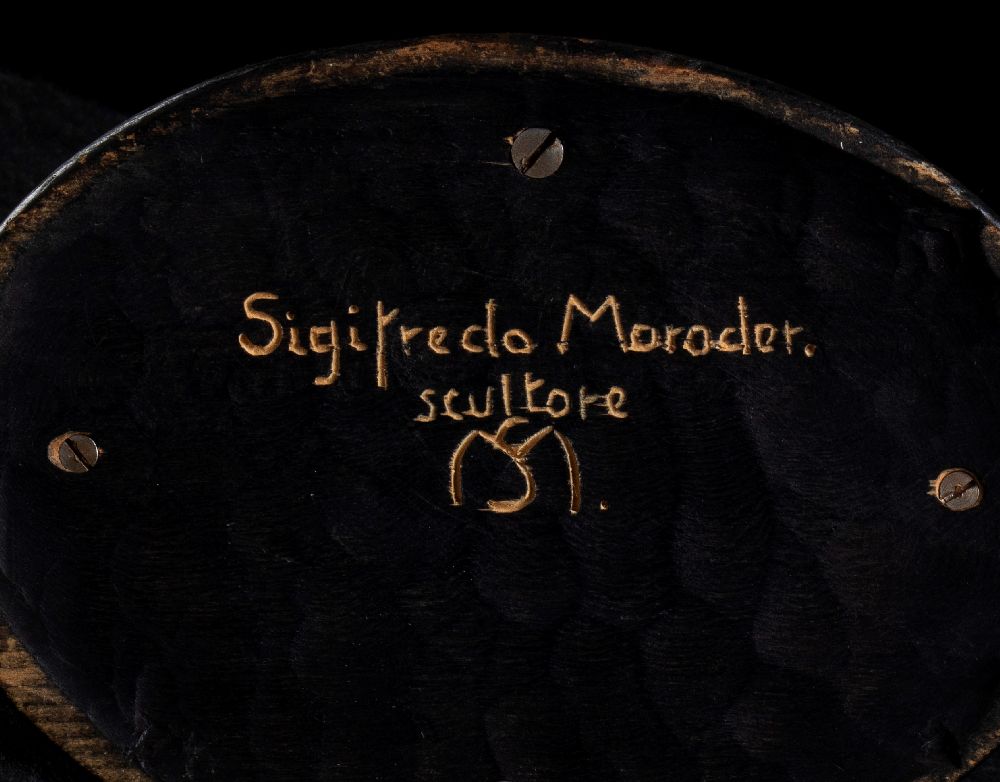 Sigifredo Moroder.
scultore
SM.